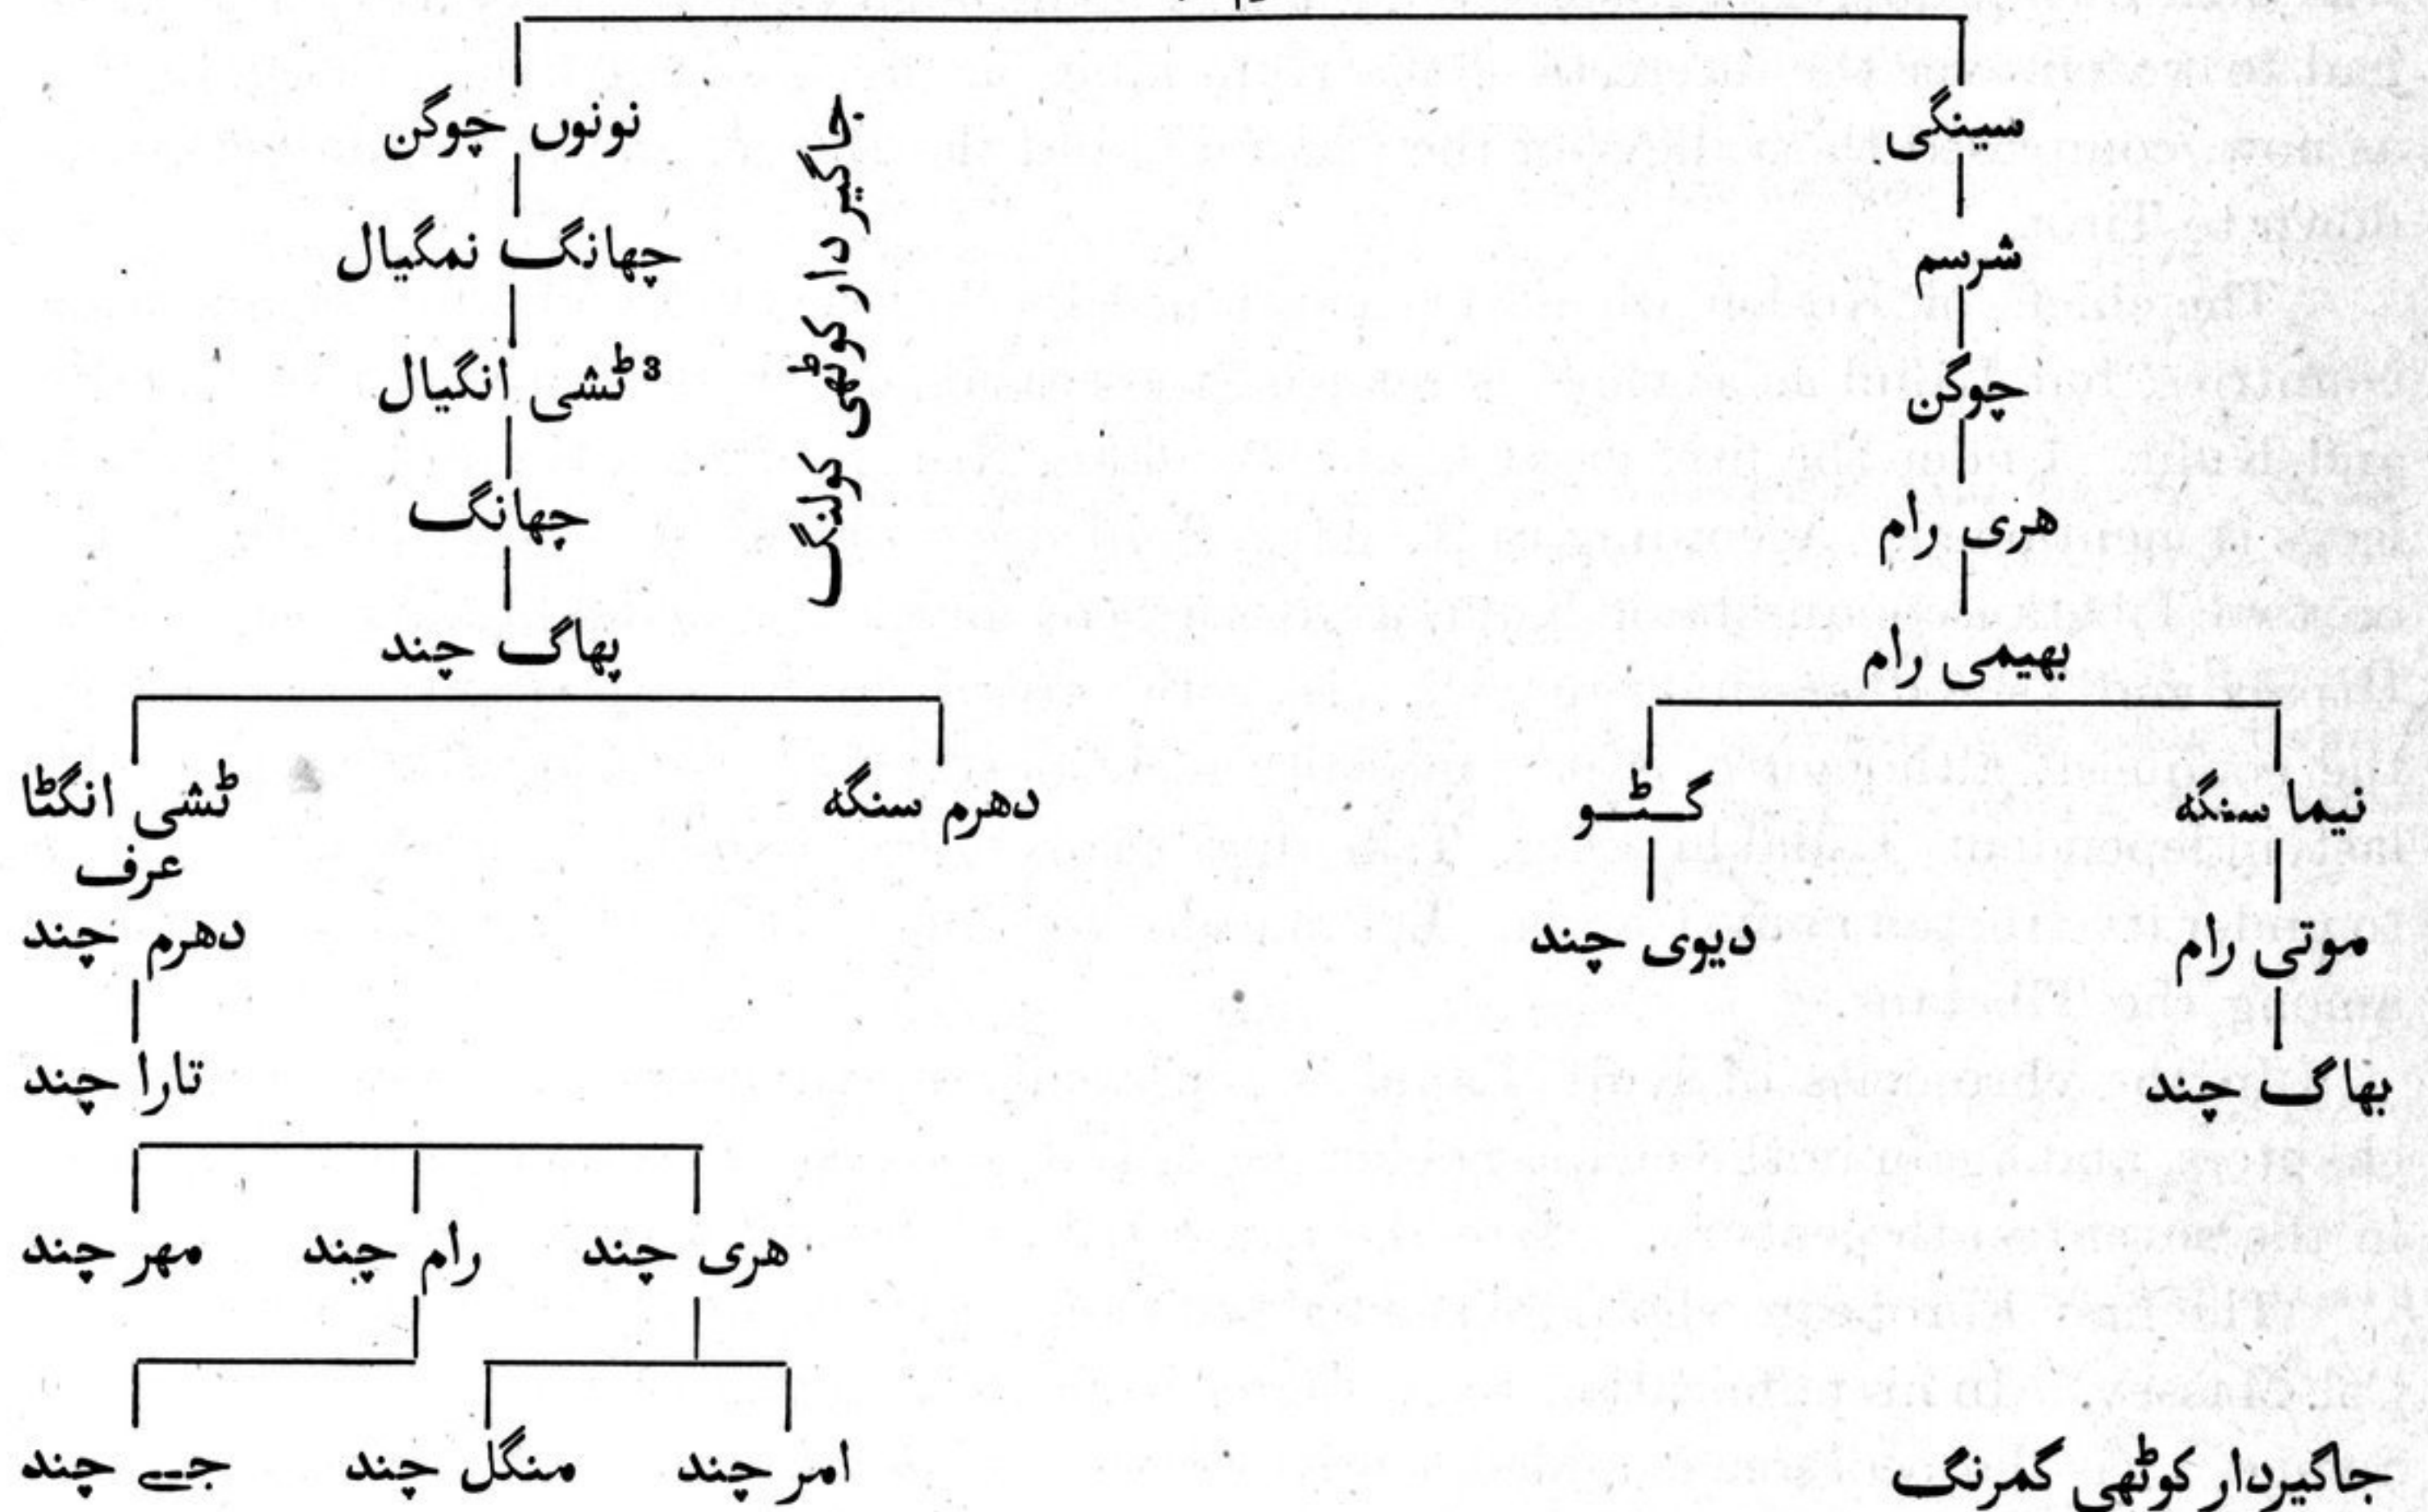 سینگی
شرسم
چوگن
هری رام
بهیمی رام
نیما سنگه
موتی رام
بهاگ چند
گٹو
دیوی چند
جاگیردار کوٹهی گمرنگ
جاگیر دار کوٹهی کولنگ
نونوں چوگن
چهانگ نمگیال
³ ٹشی انگیال
چهانگ
پهاگ چند
دهرم سنگه
ٹشی انگٹا
عرف
دهرم چند
تارا چند
هری چند رام چند مهر چند
امر چند منگل چند جے چند